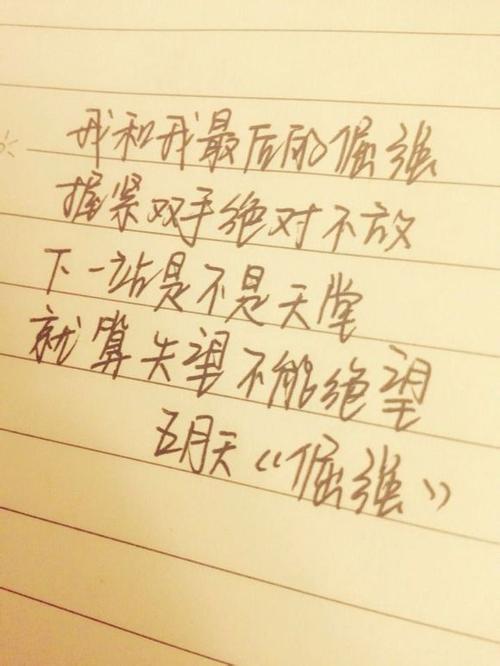 我和我最后的倔强
握紧双手绝对不放
下一站是不是天堂
就算失望不能绝望
五月天《倔强》